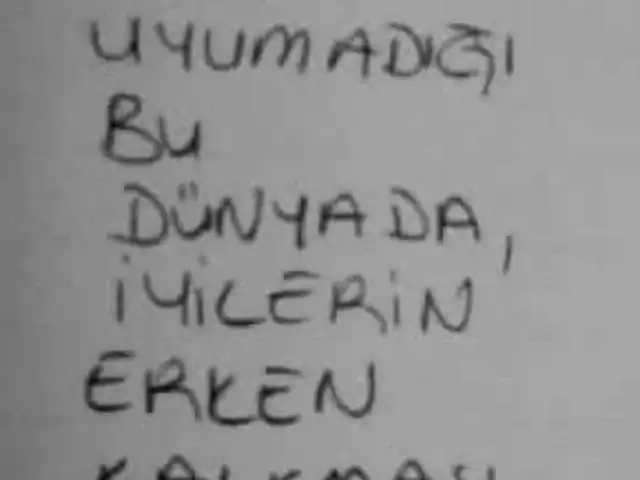 UYUMADIĞI
BU
DÜNYADA,
İYİLERİN
ERKEN
KALKMASI